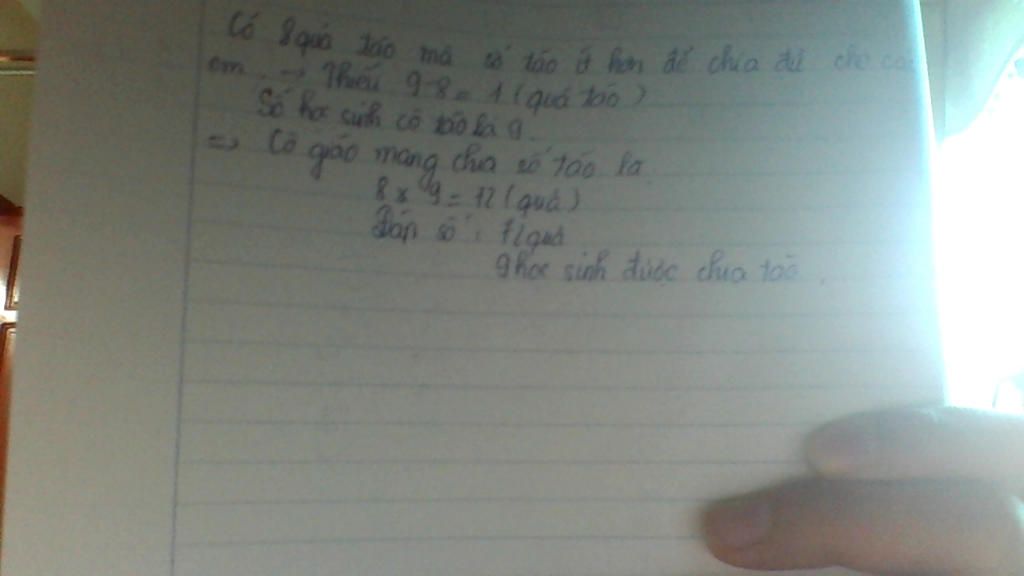 Có 8 quả táo mà số táo ít hơn để chia đủ cho các
em. → Thiếu 9-8 = 1 (quả táo)
Số học sinh có táo là 9.
=> Cô giáo mang chia số táo là
8 x 9 = 72 (quả)
Đáp số : 72 quả
9 học sinh được chia táo.